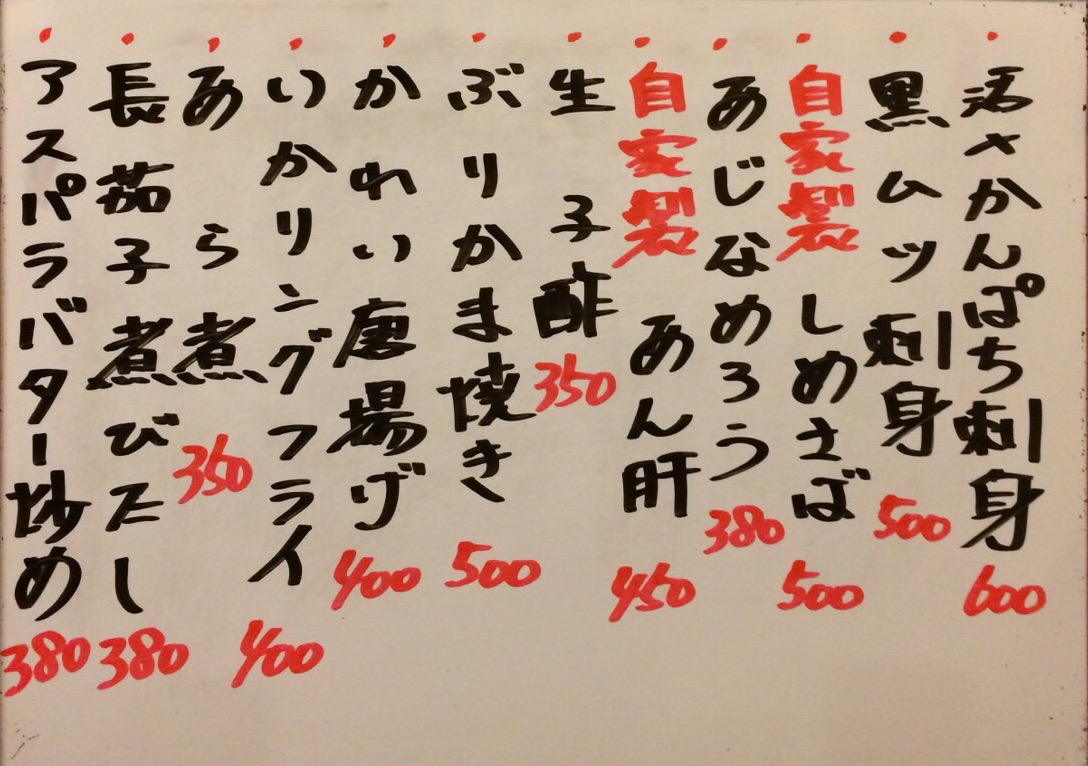 活さかんぱち刺身 600
黒ムツ刺身 500
自家製 しめさば 500
あじなめろう 380
自家製 あん肝 450
生子酢 350
ぶりかま焼き 500
かれい唐揚げ 400
いかリングフライ 400
あら煮 350
長茄子煮びたし 380
アスパラバター炒め 380